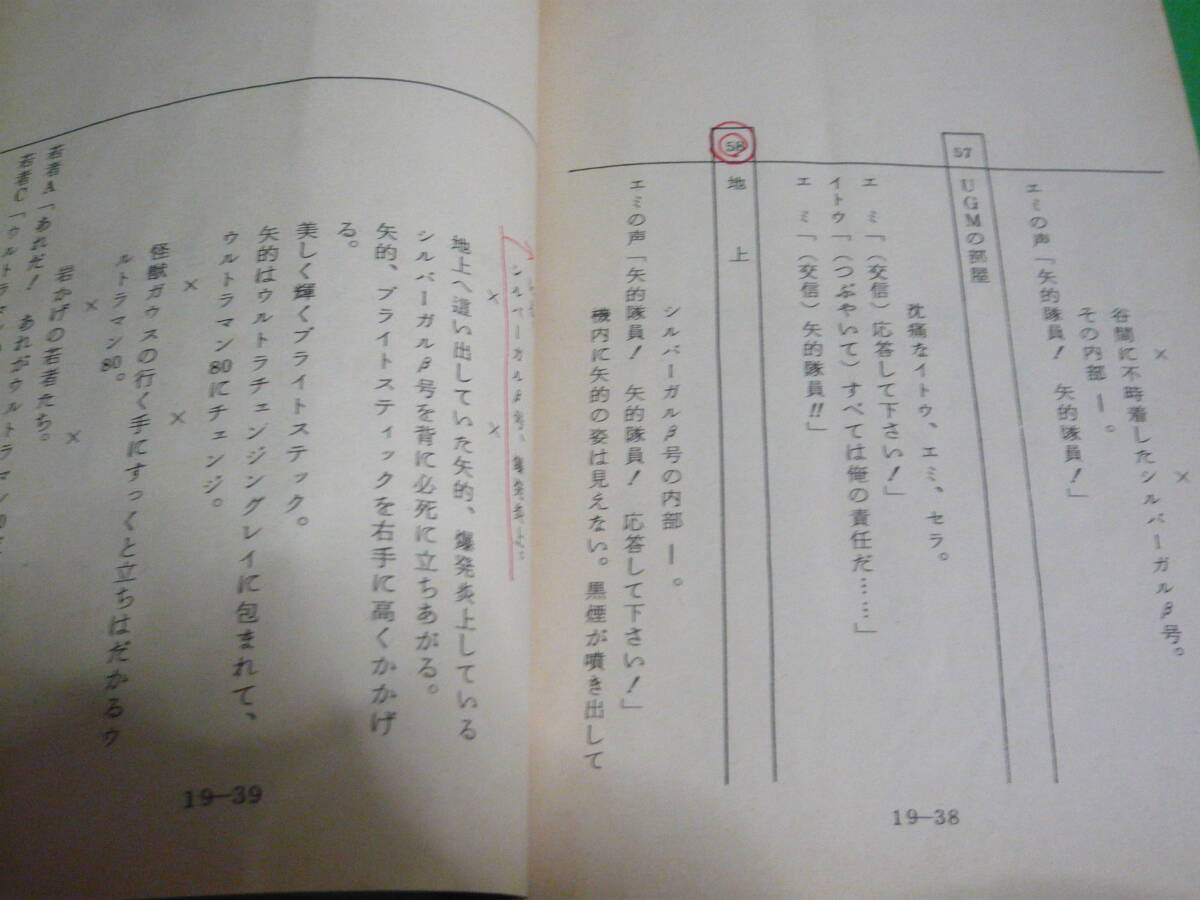 × ×
谷間に不時着したシルバーガルβ号。
その内部ー。
エミの声「矢的隊員！ 矢的隊員！」
57 UGMの部屋
沈痛なイトウ、エミ、セラ。
エ ミ「（交信）応答して下さい！」
イトウ「（つぶやいて）すべては俺の責任だ……」
エ ミ「（交信）矢的隊員!!」
58 地 上
シルバーガルβ号の内部ー。
エミの声「矢的隊員！ 矢的隊員！ 応答して下さい！」
機内に矢的の姿は見えない。黒煙が噴き出して
19―38
シルバーガルβ号、爆発炎上。
× ×
地上へ這い出していた矢的、爆発炎上している
シルバーガルβ号を背に必死に立ちあがる。
矢的、ブライトスティックを右手に高くかかげ
る。
美しく輝くブライトステック。
矢的はウルトラチェンジングレイに包まれて、
ウルトラマン80にチェンジ。
× ×
怪獣ガウスの行く手にすっくと立ちはだかるウ
ルトラマン80。
× ×
岩かげの若者たち。
若者A「あれだ！ あれがウルトラマン
若者C「ウルトラマン
19―39